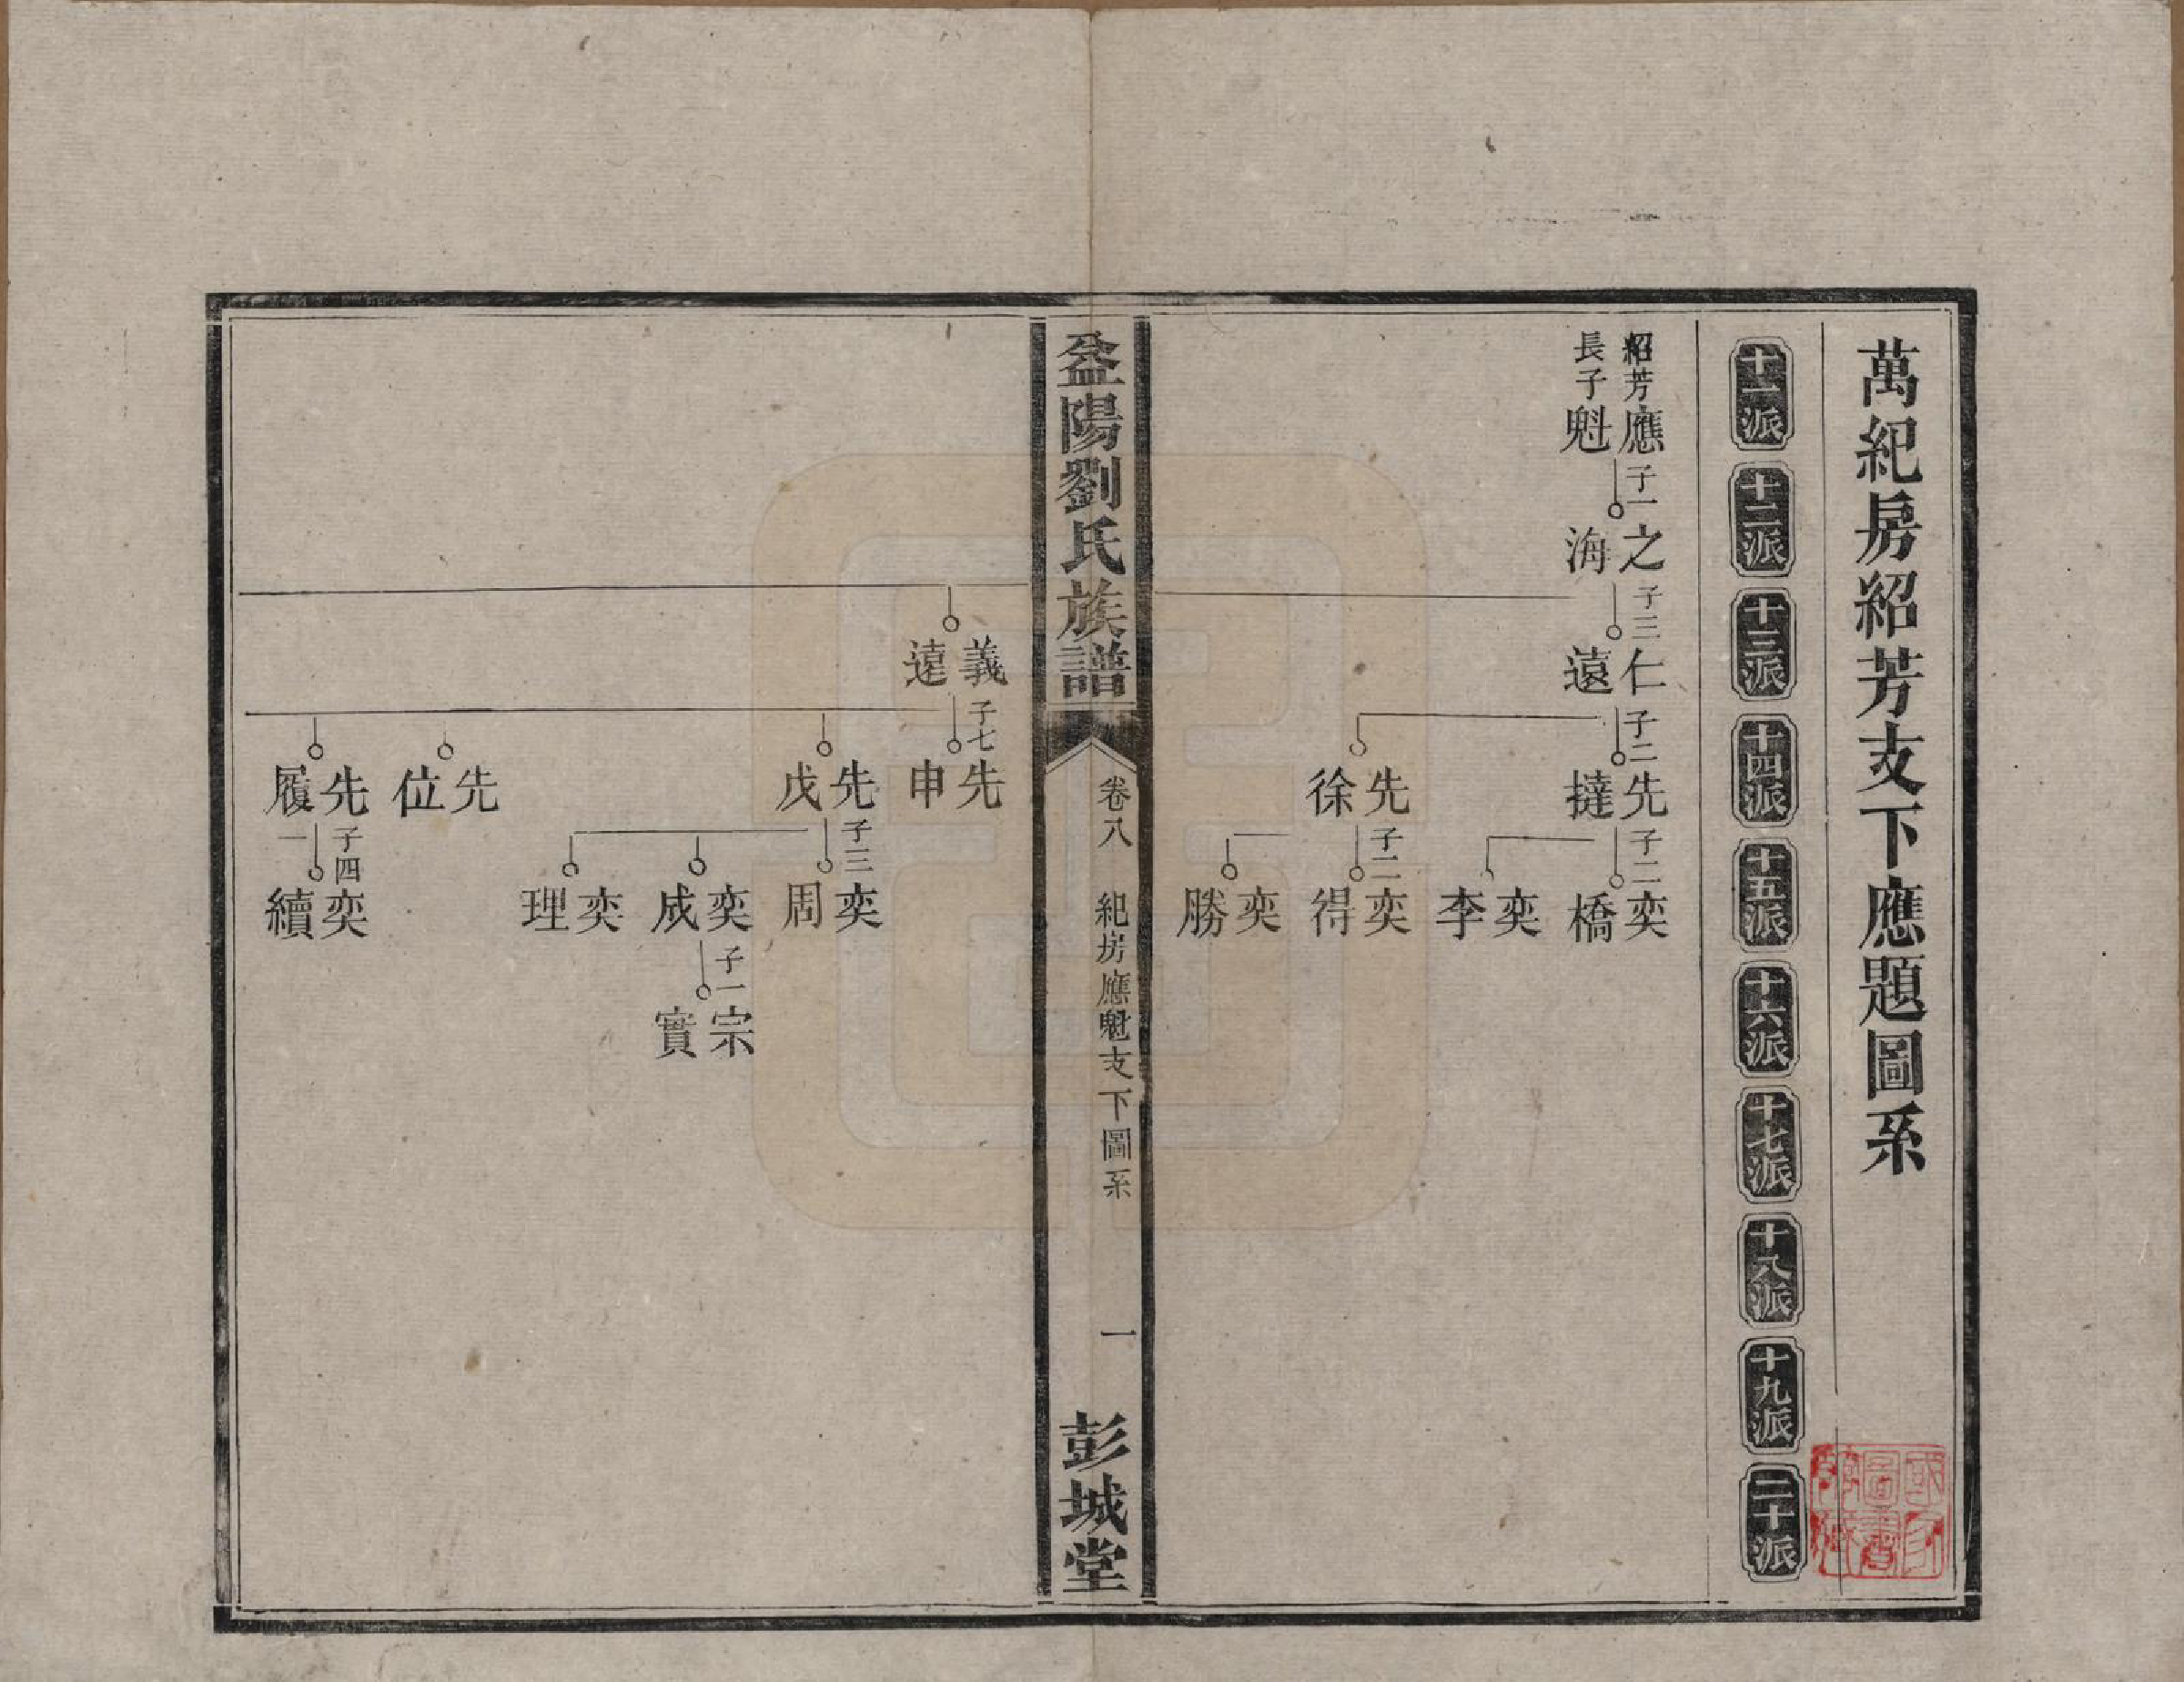 萬紀房紹芳支下應題圖系
十一派
十二派
十三派
十四派
十五派
十六派
十七派
十八派
十九派
二十派
紹芳長子
應魁
子一
之海
子三
仁遠
子二
先撻
子二
奕橋
奕李
先徐
子二
奕得
奕勝
益陽劉氏族譜
卷八
紀房應魁支下圖系
一
彭城堂
義遠
子七
先申
先戊
子三
奕周
奕成
子一
宗實
奕理
先位
先履
子四
一
奕續
國家圖書館藏